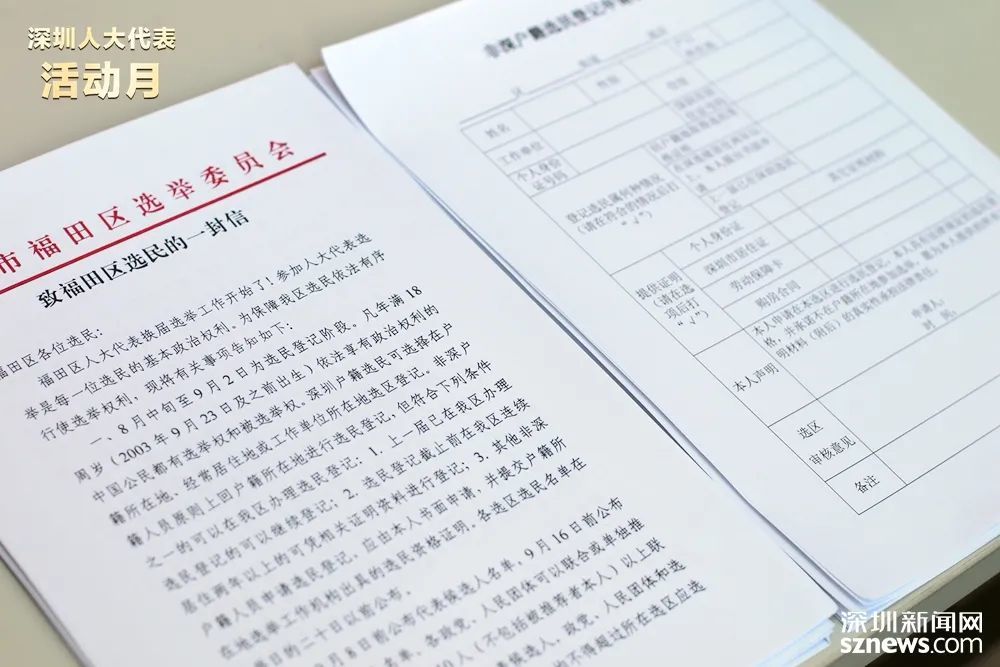 深圳人大代表
活动月
市福田区选举委员会
致福田区选民的一封信
福田区各位选民：
福田区人大代表换届选举工作开始了！参加人大代表选
举是每一位选民的基本政治权利。为保障我区选民依法有序
行使选举权利，现将有关事项告知如下：
一、8月中旬至9月2日为选民登记阶段。凡年满18
周岁（2003年9月23日及之前出生）依法享有政治权利的
中国公民都有选举权和被选举权。深圳户籍选民可选择在户
籍所在地、经常居住地或工作单位所在地选区登记。非深户
籍人员原则上回户籍所在地进行选民登记，但符合下列条件
之一的可以在我区办理选民登记：1.上一届已在我区办理
选民登记的可以继续登记；2.选民登记截止前在我区连续
居住两年以上的可凭相关证明资料进行登记；3.其他非深
户籍人员申请选民登记，应由本人书面申请，并提交户籍所
在地选举工作机构出具的选民资格证明。各选区选民名单在
日的二十日以前公布。
月8日前公布代表候选人名单，9月16日前公布
名单。各政党、人民团体可以联合或单独推
人（不包括被推荐者本人）以上联
候选人，政党、人民团体和选
不得超过所在选区应选
非深户籍选民登记申请
姓名
工作单位
个人身份
证号码
登记选民属何种情况
（请在符合的情况后打
“√”）
登记
提供证明
（请在选
项后打
“√”）
个人身份证
深圳市居住证
劳动保障卡
购房合同
本人声明
本人申请在本选区进行选民登记，
申请人：
时 间：
选区
审核意见
备注
深圳新闻网
sznews.com